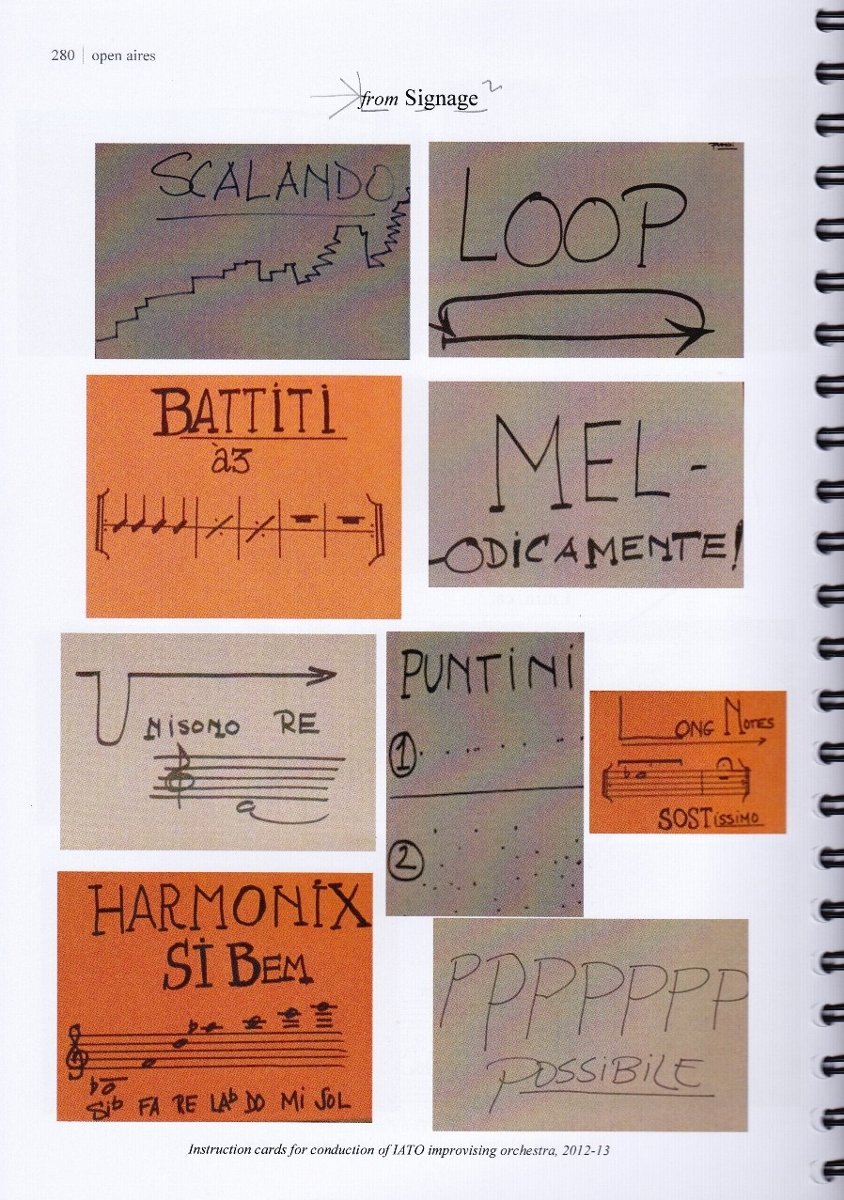 280 | open aires
from Signage 2
SCALANDO
LOOP
BATTITI
à3
MEL-
ODICAMENTE!
UNISONO RE
PUNTINI
1
2
LONG NOTES
SOSTISSIMO
HARMONIX
SI BEM
SIb FA RE LAb DO MI SOL
PPPPPPP
POSSIBILE
Instruction cards for conduction of IATO improvising orchestra, 2012-13